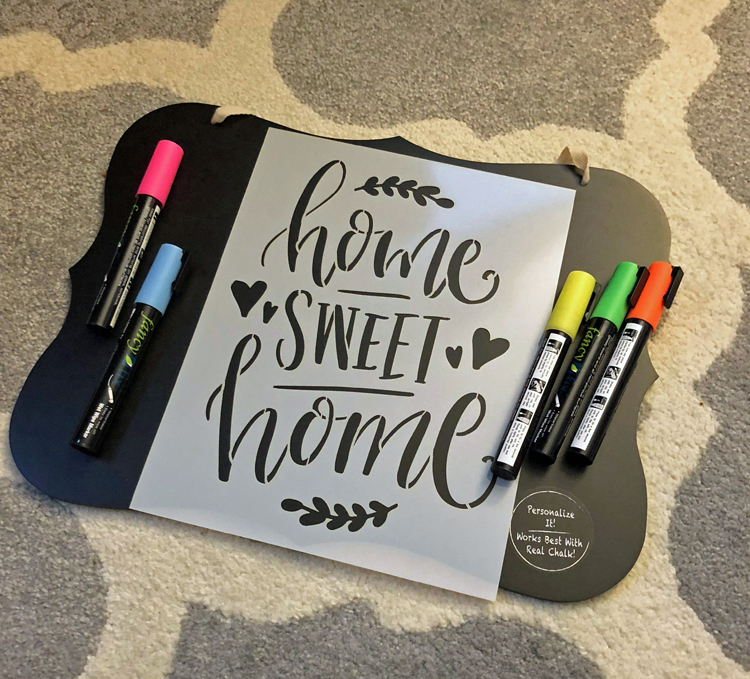 home
SWEET
home
fancy
fancy
Personalize
It!
Works Best With
Real Chalk!